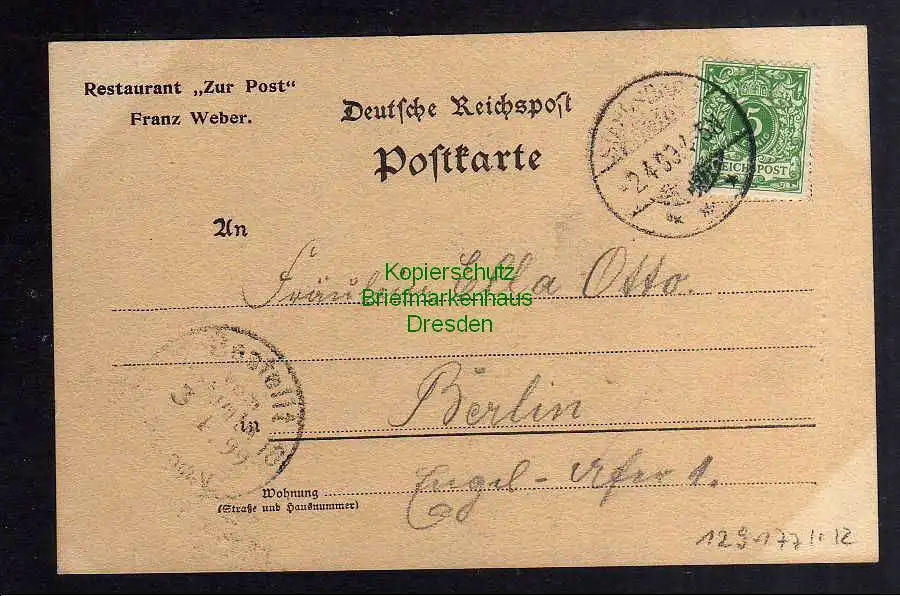 Restaurant „Zur Post"
Franz Weber.
Deutsche Reichspost
Postkarte
5
REICHSPOST
An
Fräulein Ella Otto.
Kopierschutz
Briefmarkenhaus
Dresden
Bestellt
in Berlin
Engel-Ufer 1.
Wohnung
(Straße und Hausnummer)